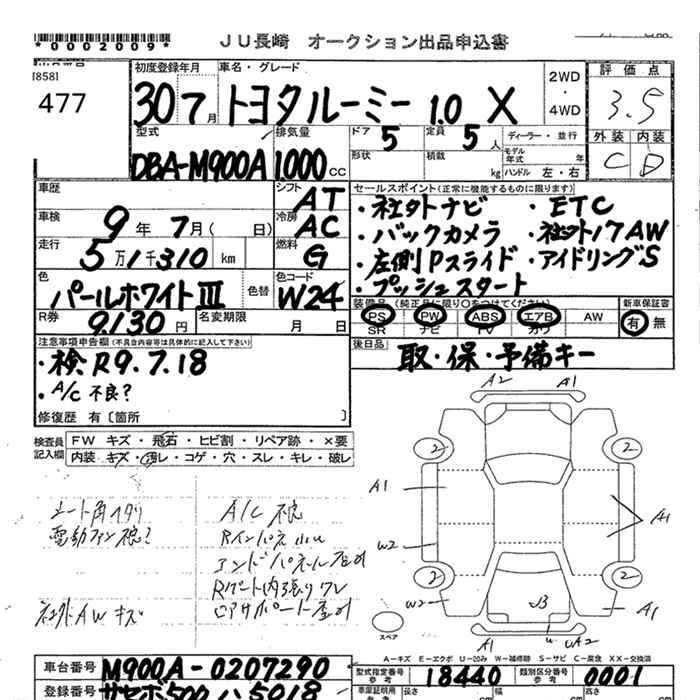 *0002009*
JU長崎 オークション出品申込書
[858]
477
初度登録年月
30 7月
車名・グレード
トヨタルーミー 1.0 X
2WD
・
4WD
評価点
3.5
型式
DBA-M900A
排気量
1000CC
ドア
5
定員
5人
形状
積載
kg
ディーラー・並行
モデル年式 年
ハンドル 左・右
外装 内装
C D
車歴
シフト
AT
車検
9年 7月( 日)
冷房
AC
走行
5万1千310km
燃料
G
色
パールホワイトIII
色替
色コード
W24
R券
9,130円
名変期限
月 日
セールスポイント(正常に機能するものに限ります)
・社外ナビ ・ETC
・バックカメラ ・社外17AW
・左側Pスライド ・アイドリングS
・プッシュスタート
装備品(純正品に限り○をつけてください)
PS PW ABS エアB AW
SR ナビ TV カワ
新車保証書
有 無
後日品
取・保・予備キー
注意事項申告欄(不具合内容等は具体的に記入して下さい)
・検R9.7.18
・A/C 不良?
修復歴 有〔箇所 〕
検査員記入欄
FW キズ・飛石・ヒビ割・リペア跡・×要
内装 キズ・汚レ・コゲ・穴・スレ・キレ・破レ
電動ファン不良?
社外AWキズ
A/C 不良
A2 A1
2 2
A1 A1
W2
2 2
W2 A1
スペア
A1 U UA2
A-キズ E-エクボ U-凹み W-補修跡 S-サビ C-腐食 XX-交換済
車台番号
M900A-0207290
型式指定番号
18440
類別区分番号
0001
登録番号
サセボ500 ハ 5018
車庫証明用参考
長さ cm
幅 cm
高さ cm